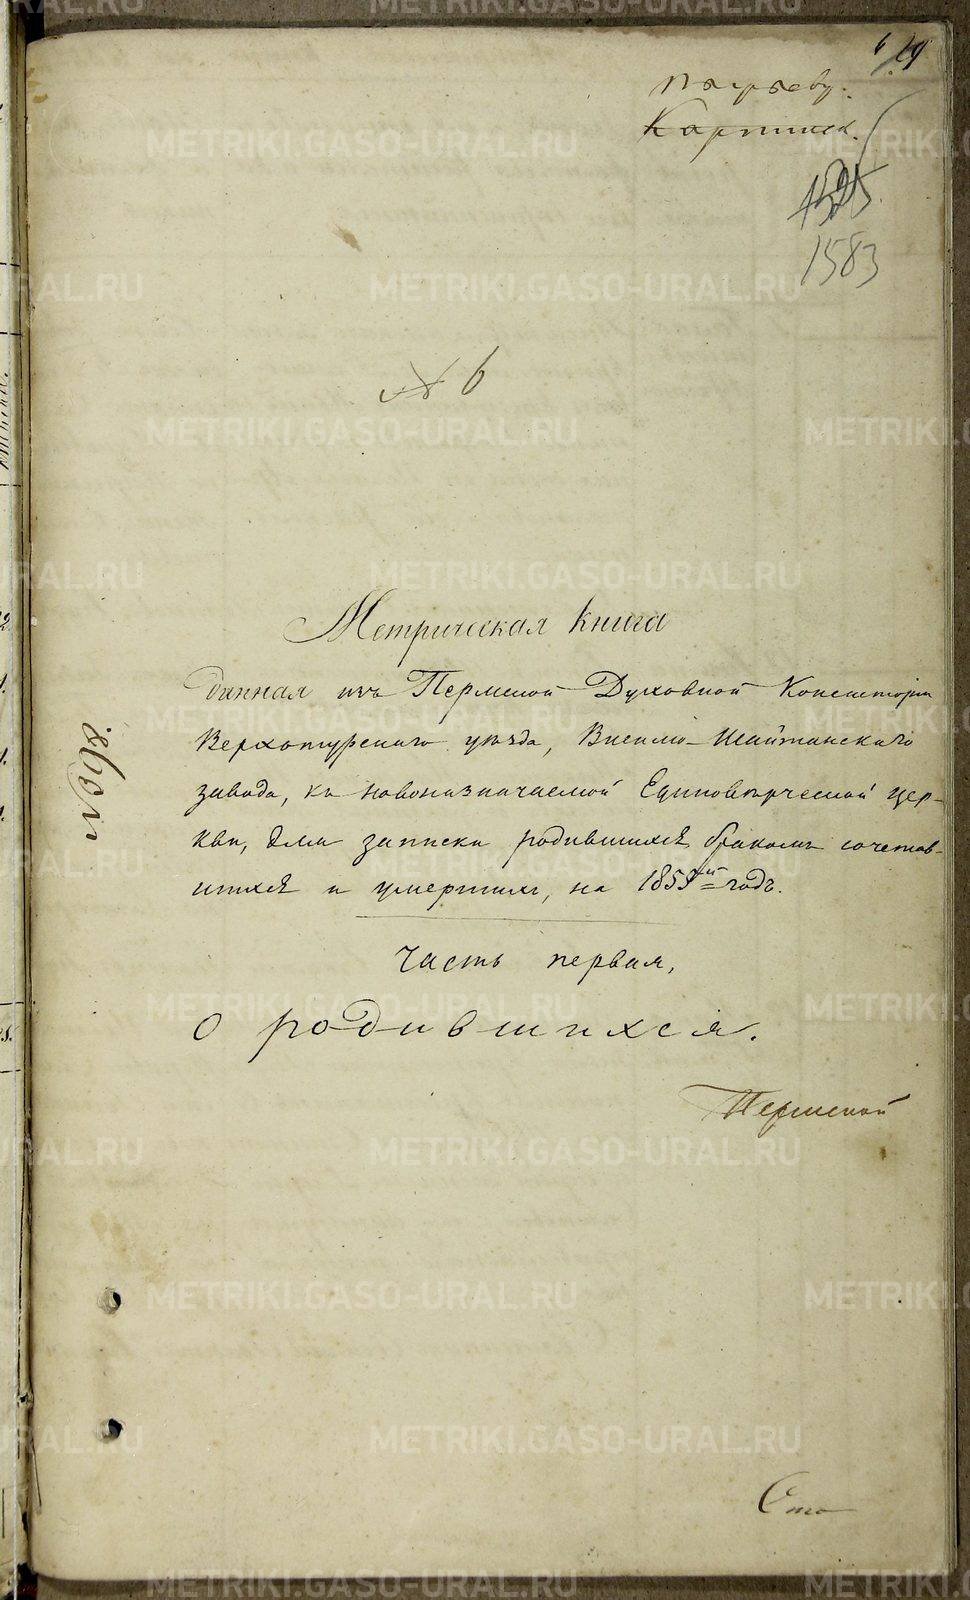 1583
№ 6
Метрическая книга
данная изъ Пермской Духовной Консисторіи
Верхотурскаго уѣзда, Висимо-Шайтанскаго
завода, къ новоназначаемой Единовѣрческой цер-
кви, для записки родившихся бракомъ сочетав-
шихся и умершихъ, на 1855й годъ.
Часть первая,
О родившихся.
Пермской
Сто
METRIKI.GASO-URAL.RU